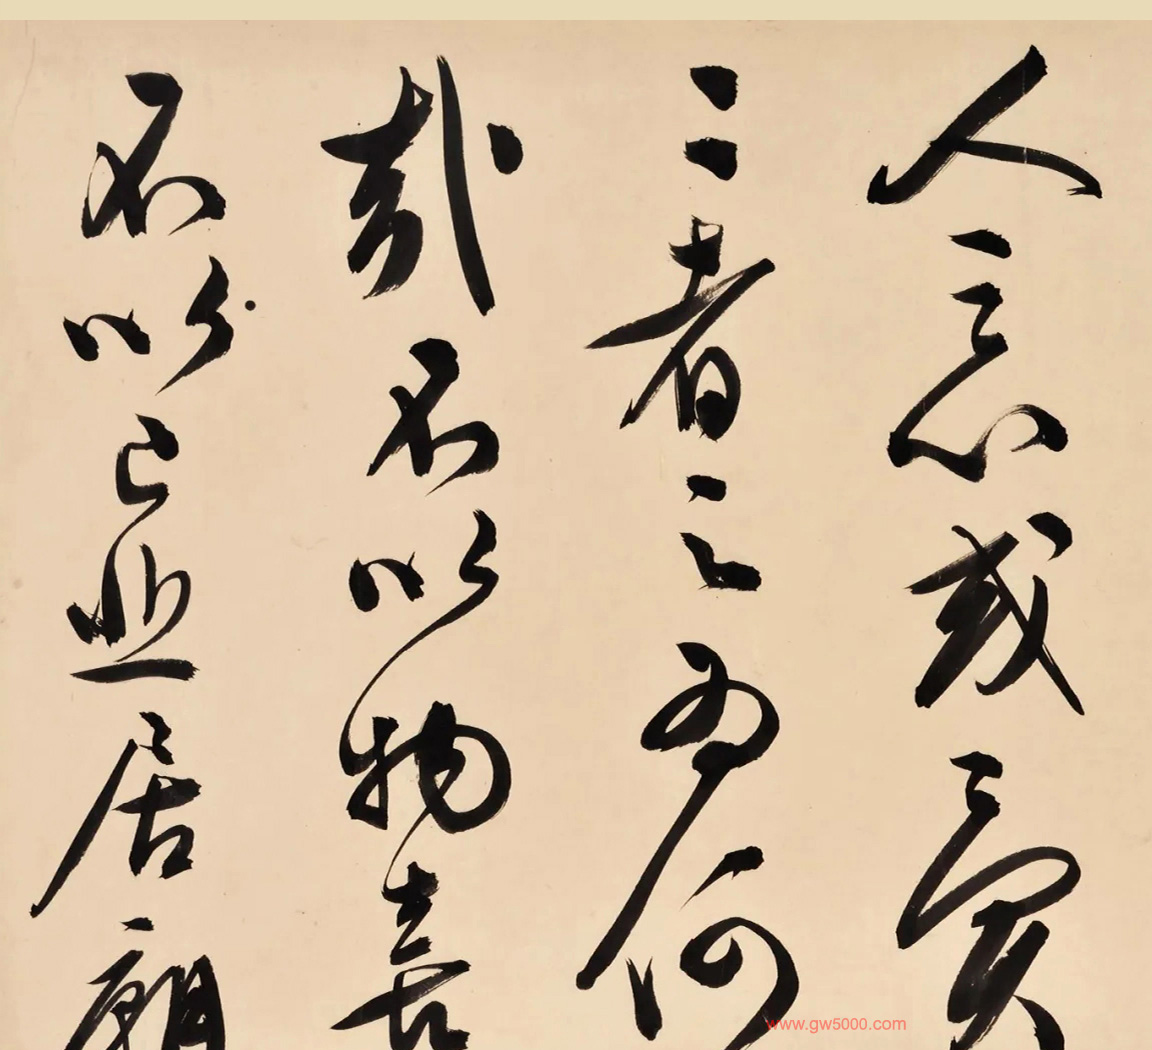 人之心或異
二者之為何
哉不以物喜
不以己悲居廟
www.gw5000.com